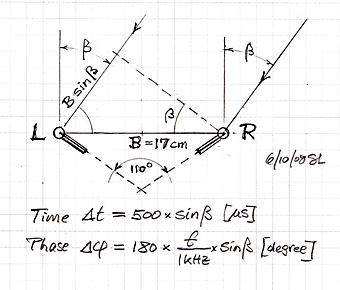 β
β
B sinβ
β
L
R
B = 17cm
110°
6/10/08 SL
Time Δt = 500 × sinβ [μs]
Phase Δφ = 180 × f/1kHz × sinβ [degree]